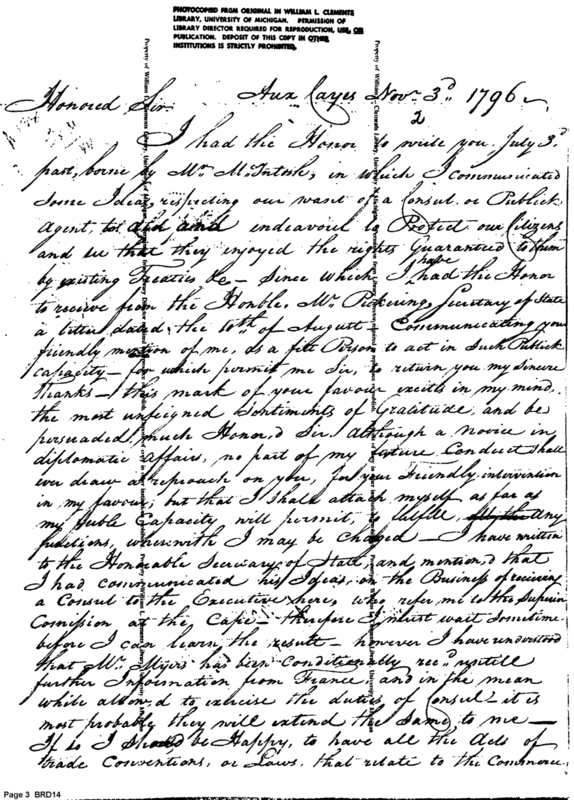 PHOTOCOPIED FROM ORIGINAL IN WILLIAM L. CLEMENTS
LIBRARY, UNIVERSITY OF MICHIGAN. PERMISSION OF
LIBRARY DIRECTOR REQUIRED FOR REPRODUCTION, USE, OR
PUBLICATION. DEPOSIT OF THIS COPY IN OTHER
INSTITUTIONS IS STRICTLY PROHIBITED.
Aux Cayes Novr 3d 1796
Honored Sir
2
I had the Honor to write you July 3d
past, borne by Mr McIntosh, in which I communicated
some Ideas, respecting our want of a Consul or Publick
Agent, to aid and endeavour to Protect our Citizens
and see that they enjoyed the rights Guaranteed to them
by existing Treaties &c – Since which I have had the Honor
to receive from the Honble. Mr Pickering, Secretary of State
a letter dated the 10th of August – Communicating your
friendly mention of me, as a fitt Person to act in Such Publick
capacity – for which permit me Sir, to return you my Sincere
Thanks – this mark of your favour excites in my mind
the most unfeigned Sentiments of Gratitude, and be
persuaded, much Honor,d Sir Although a Novice in
diplomatic affairs, no part of my future Conduct shall
ever draw a reproach on you, for your Friendly intervention
in my favour; but that I shall attach myself as far as
my feeble Capacity will permit, to fulfill, any
functions, wherewith I may be charged – I have written
to the Honorable Secretary of State, and mention,d that
I had communicated his Ideas, on the Business of receiving
a Consul to the Executive here, who refer me to the Superior
Comission at the Cape – therefore I must wait Sometime
before I can learn the result – however I have understood
that Mr Myers has been Conditionally recd untill
further Information from France, and in the mean
while allow,d to exercise the duties of Consul – it is
most probably they will extend the Same to me –
If so I should be Happy, to have all the Acts of
trade Conventions, or Laws, that relate to the Commerce
Page 3 BRD14